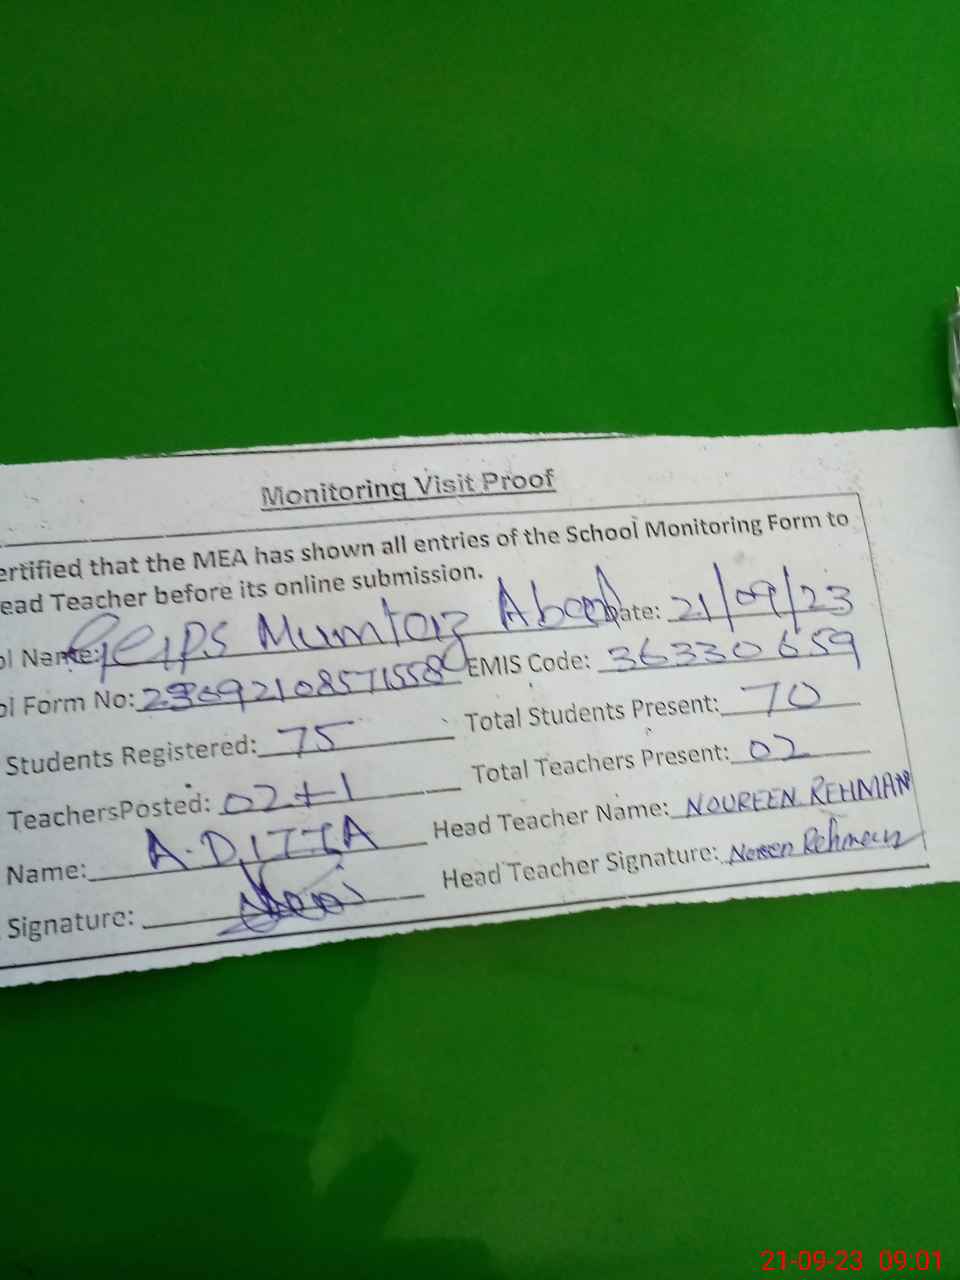 Monitoring Visit Proof
ertified that the MEA has shown all entries of the School Monitoring Form to
ead Teacher before its online submission.
ol Name: Mumtaz Abad Date: 21/09/23
ol Form No: EMIS Code: 36330659
Students Registered: 75 Total Students Present: 70
TeachersPosted: 02+1 Total Teachers Present: 02
Name: A.DITTA Head Teacher Name: NOUREEN REHMAN
Signature: Head Teacher Signature: Rehman
21-09-23 09:01